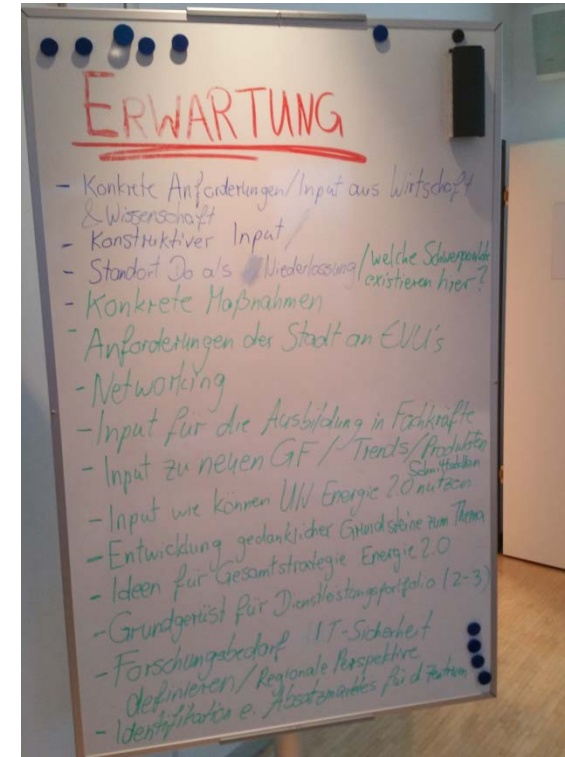 ERWARTUNG
- Konkrete Anforderungen/Input aus Wirtschaft
& Wissenschaft
- Konstruktiver Input/
- Standort Do als Niederlassung/welche Schwerpunkte
existieren hier?
- Konkrete Maßnahmen
- Anforderungen der Stadt an EVU's
- Networking
- Input für die Ausbildung in Fachkräfte
- Input zu neuen GF/Trends/Produkten
Schnittstellen
- Input wie können UN Energie 2.0 nutzen
- Entwicklung gedanklicher Grundsteine zum Thema
- Ideen für Gesamtstrategie Energie 2.0
- Grundgerüst für Dienstleistungsportfolio (2-3)
- Forschungsbedarf IT-Sicherheit
definieren/Regionale Perspektive
- Identifikation e. Absatzmarktes für d Zentrum